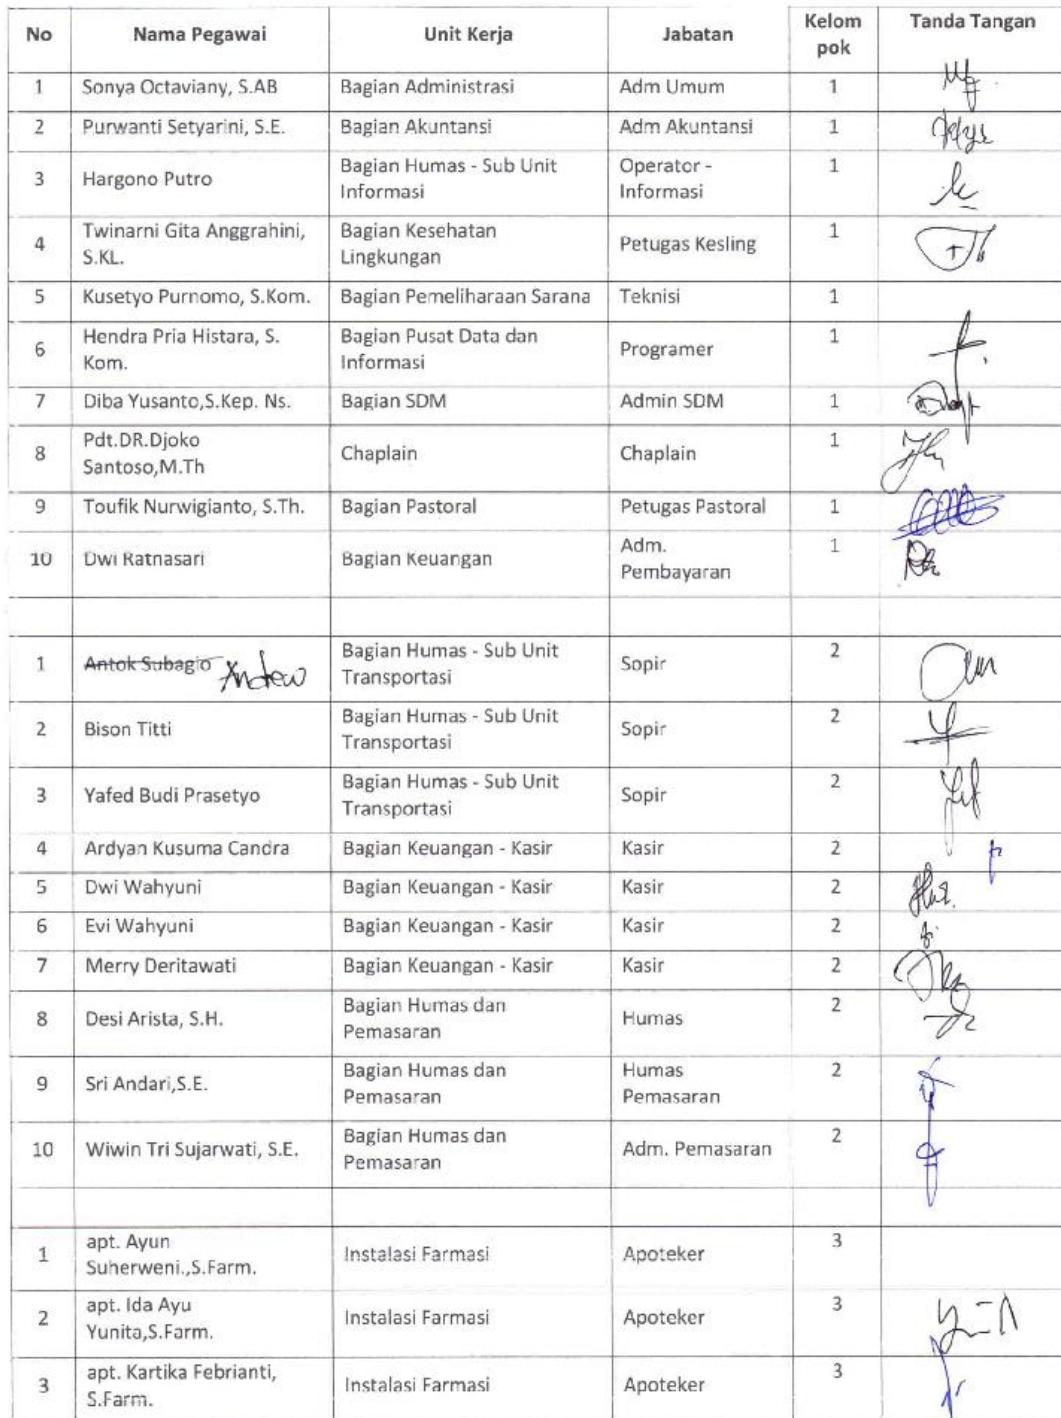 No Nama Pegawai Unit Kerja Jabatan Kelom pok Tanda Tangan
1 Sonya Octaviany, S.AB Bagian Administrasi Adm Umum 1
2 Purwanti Setyarini, S.E. Bagian Akuntansi Adm Akuntansi 1
3 Hargono Putro Bagian Humas - Sub Unit Informasi Operator - Informasi 1
4 Twinarni Gita Anggrahini, S.KL. Bagian Kesehatan Lingkungan Petugas Kesling 1
5 Kusetyo Purnomo, S.Kom. Bagian Pemeliharaan Sarana Teknisi 1
6 Hendra Pria Histara, S. Kom. Bagian Pusat Data dan Informasi Programer 1
7 Diba Yusanto,S.Kep. Ns. Bagian SDM Admin SDM 1
8 Pdt.DR.Djoko Santoso,M.Th Chaplain Chaplain 1
9 Toufik Nurwigianto, S.Th. Bagian Pastoral Petugas Pastoral 1
10 Dwi Ratnasari Bagian Keuangan Adm. Pembayaran 1
1 Antok Subagio Andrew Bagian Humas - Sub Unit Transportasi Sopir 2
2 Bison Titti Bagian Humas - Sub Unit Transportasi Sopir 2
3 Yafed Budi Prasetyo Bagian Humas - Sub Unit Transportasi Sopir 2
4 Ardyan Kusuma Candra Bagian Keuangan - Kasir Kasir 2
5 Dwi Wahyuni Bagian Keuangan - Kasir Kasir 2
6 Evi Wahyuni Bagian Keuangan - Kasir Kasir 2
7 Merry Deritawati Bagian Keuangan - Kasir Kasir 2
8 Desi Arista, S.H. Bagian Humas dan Pemasaran Humas 2
9 Sri Andari,S.E. Bagian Humas dan Pemasaran Humas Pemasaran 2
10 Wiwin Tri Sujarwati, S.E. Bagian Humas dan Pemasaran Adm. Pemasaran 2
1 apt. Ayun Suherweni.,S.Farm. Instalasi Farmasi Apoteker 3
2 apt. Ida Ayu Yunita,S.Farm. Instalasi Farmasi Apoteker 3
3 apt. Kartika Febrianti, S.Farm. Instalasi Farmasi Apoteker 3